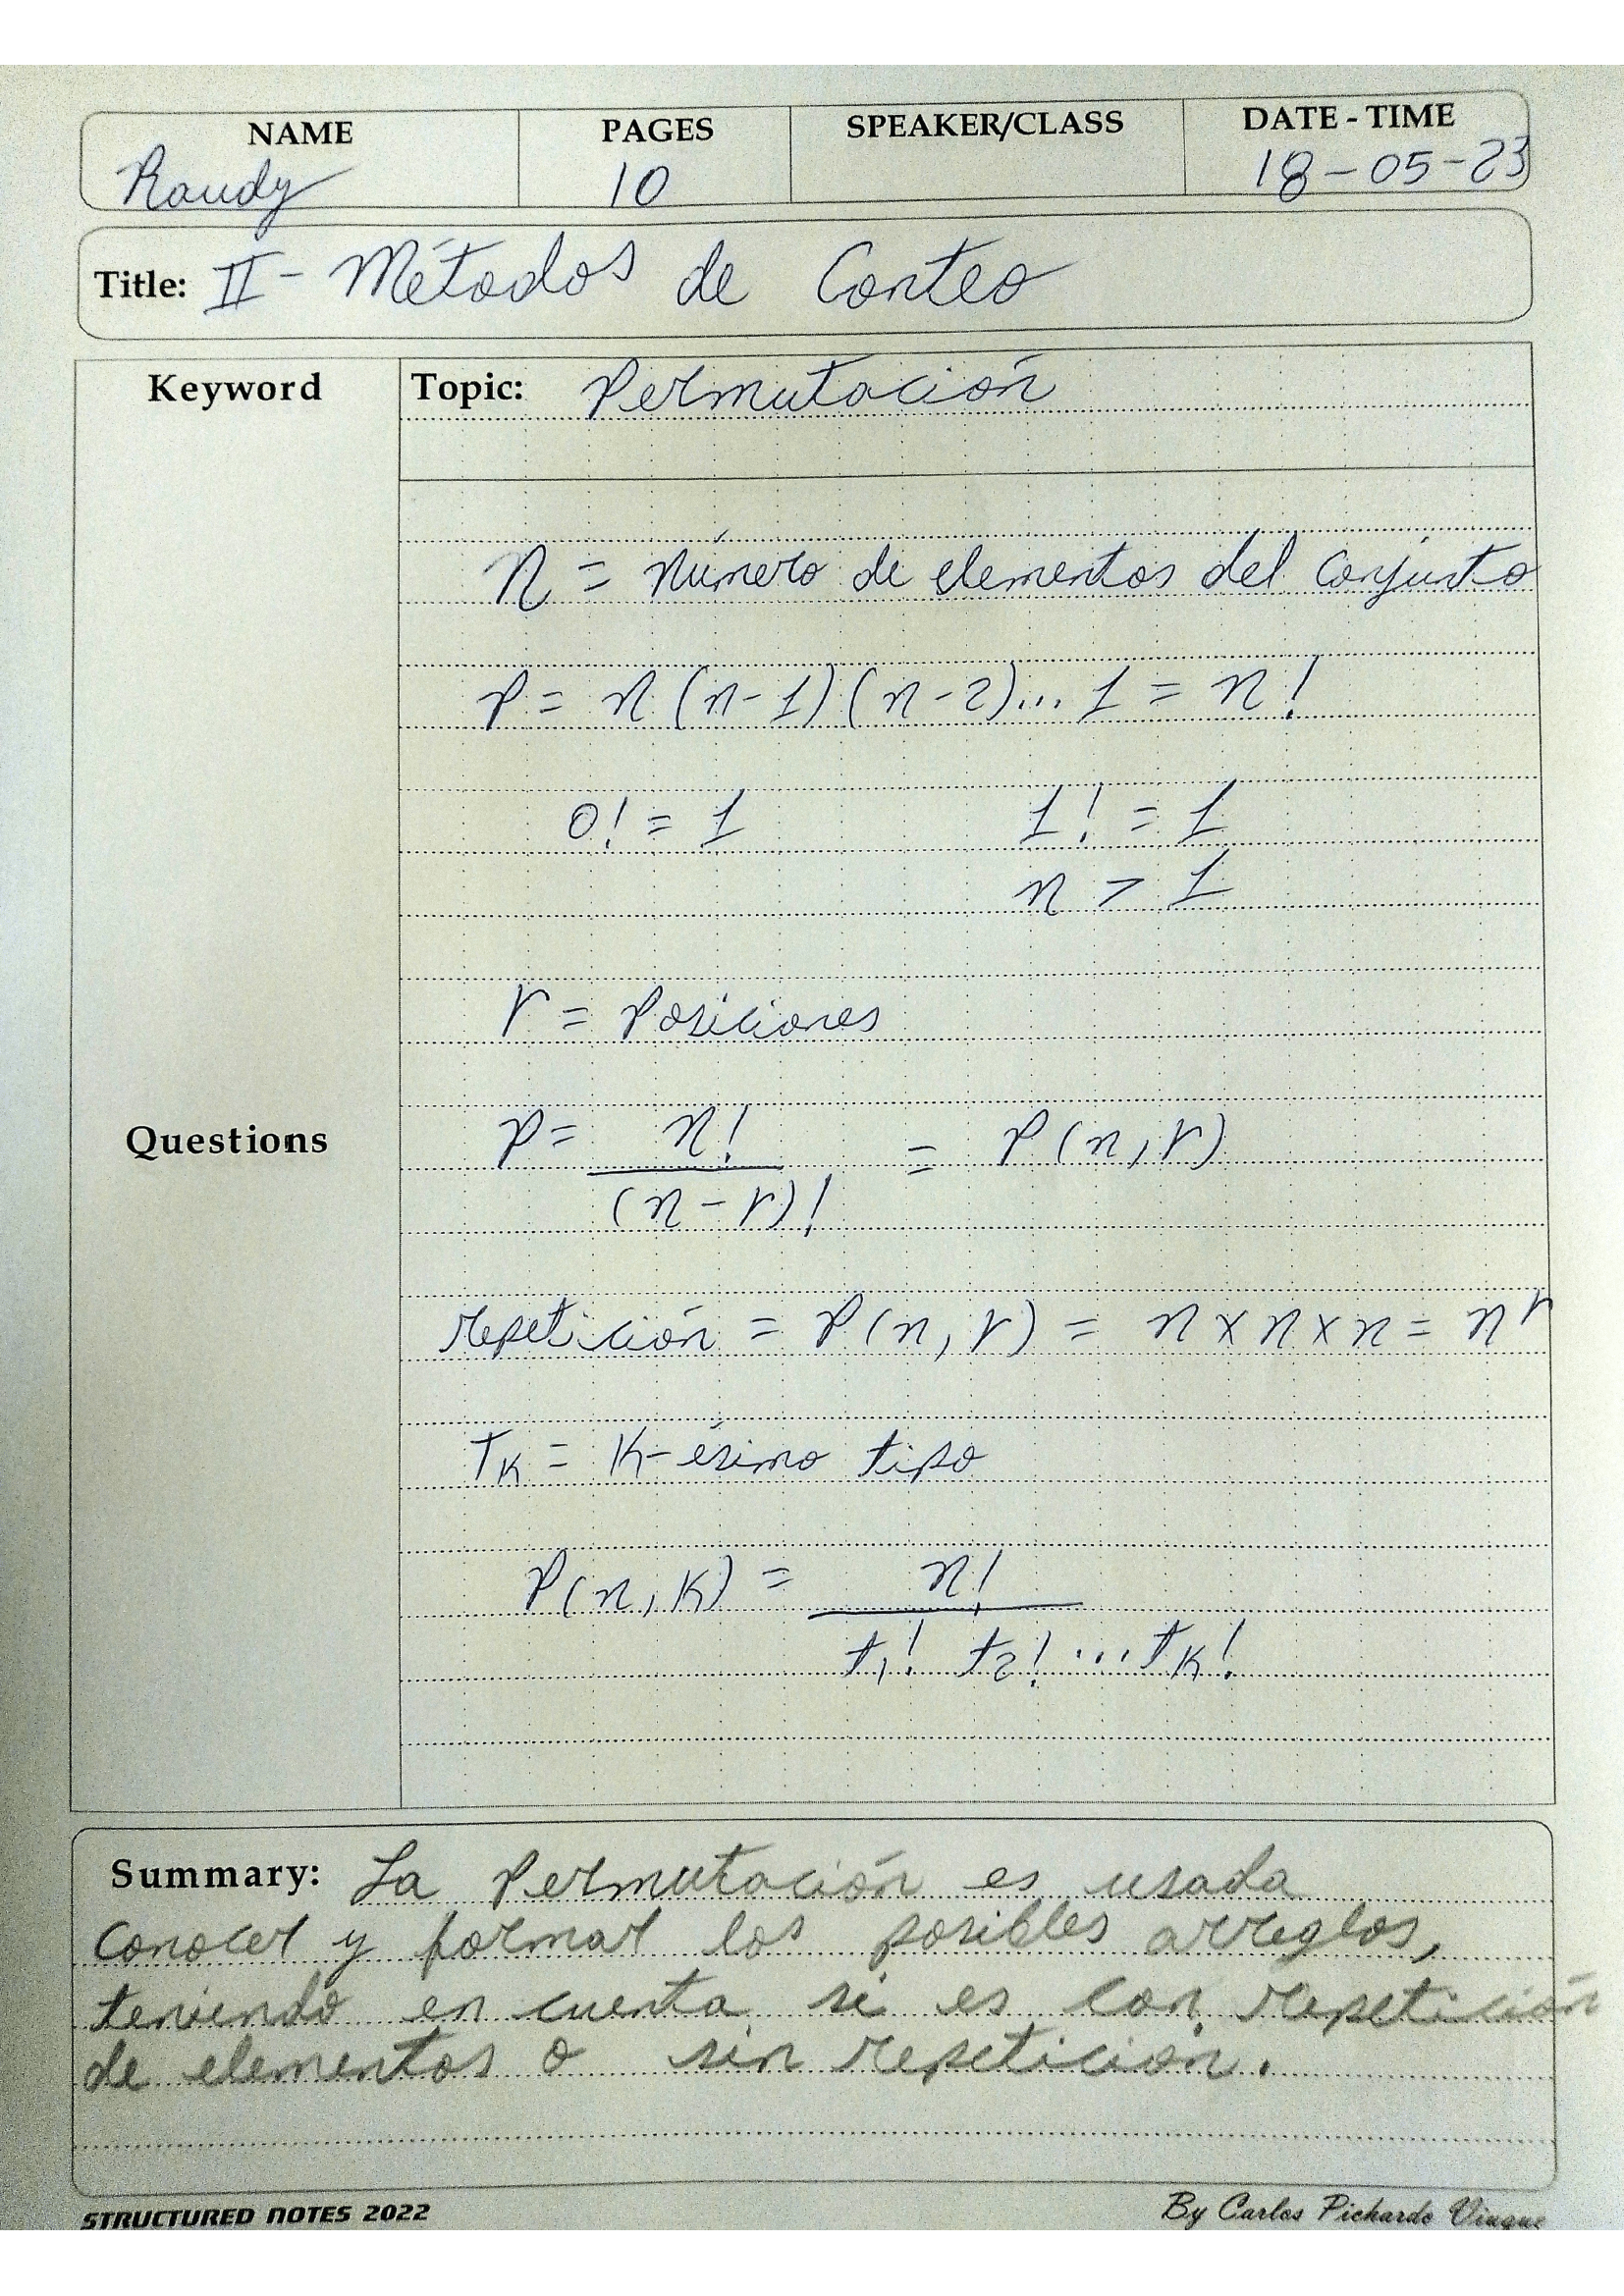 NAME PAGES SPEAKER/CLASS DATE - TIME
Raudy 10 18-05-23
Title: II - Métodos de Conteo
Keyword Topic: Permutación
n = número de elementos del conjunto
P = n (n-1) (n-2)... 1 = n!
0! = 1 1! = 1
n > 1
r = Posiciones
Questions P = n! / (n-r)! = P(n,r)
repetición = P(n,r) = n x n x n = n^r
T_K = K-ésimo tipo
P(n,K) = n! / t_1! t_2! ... t_K!
Summary: La Permutación es usada
conocer y formar los posibles arreglos,
teniendo en cuenta si es con repetición
de elementos o sin repetición.
STRUCTURED NOTES 2022 By Carlos Pichardo Viuque